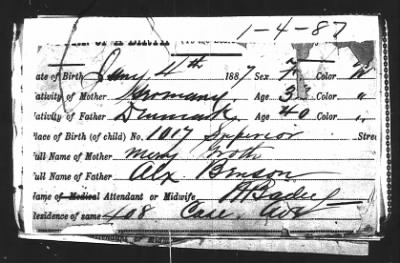 1-4-87
ate of Birth Jany 4th 1887 Sex Color W
ativity of Mother Germany Age 33 Color "
ativity of Father Denmark Age 40 Color "
lace of Birth (of child) No. 1017 Superior Stree
ull Name of Mother Mary
ull Name of Father Alx Benson
ame of Medical Attendant or Midwife
Residence of same 408 Case Ave